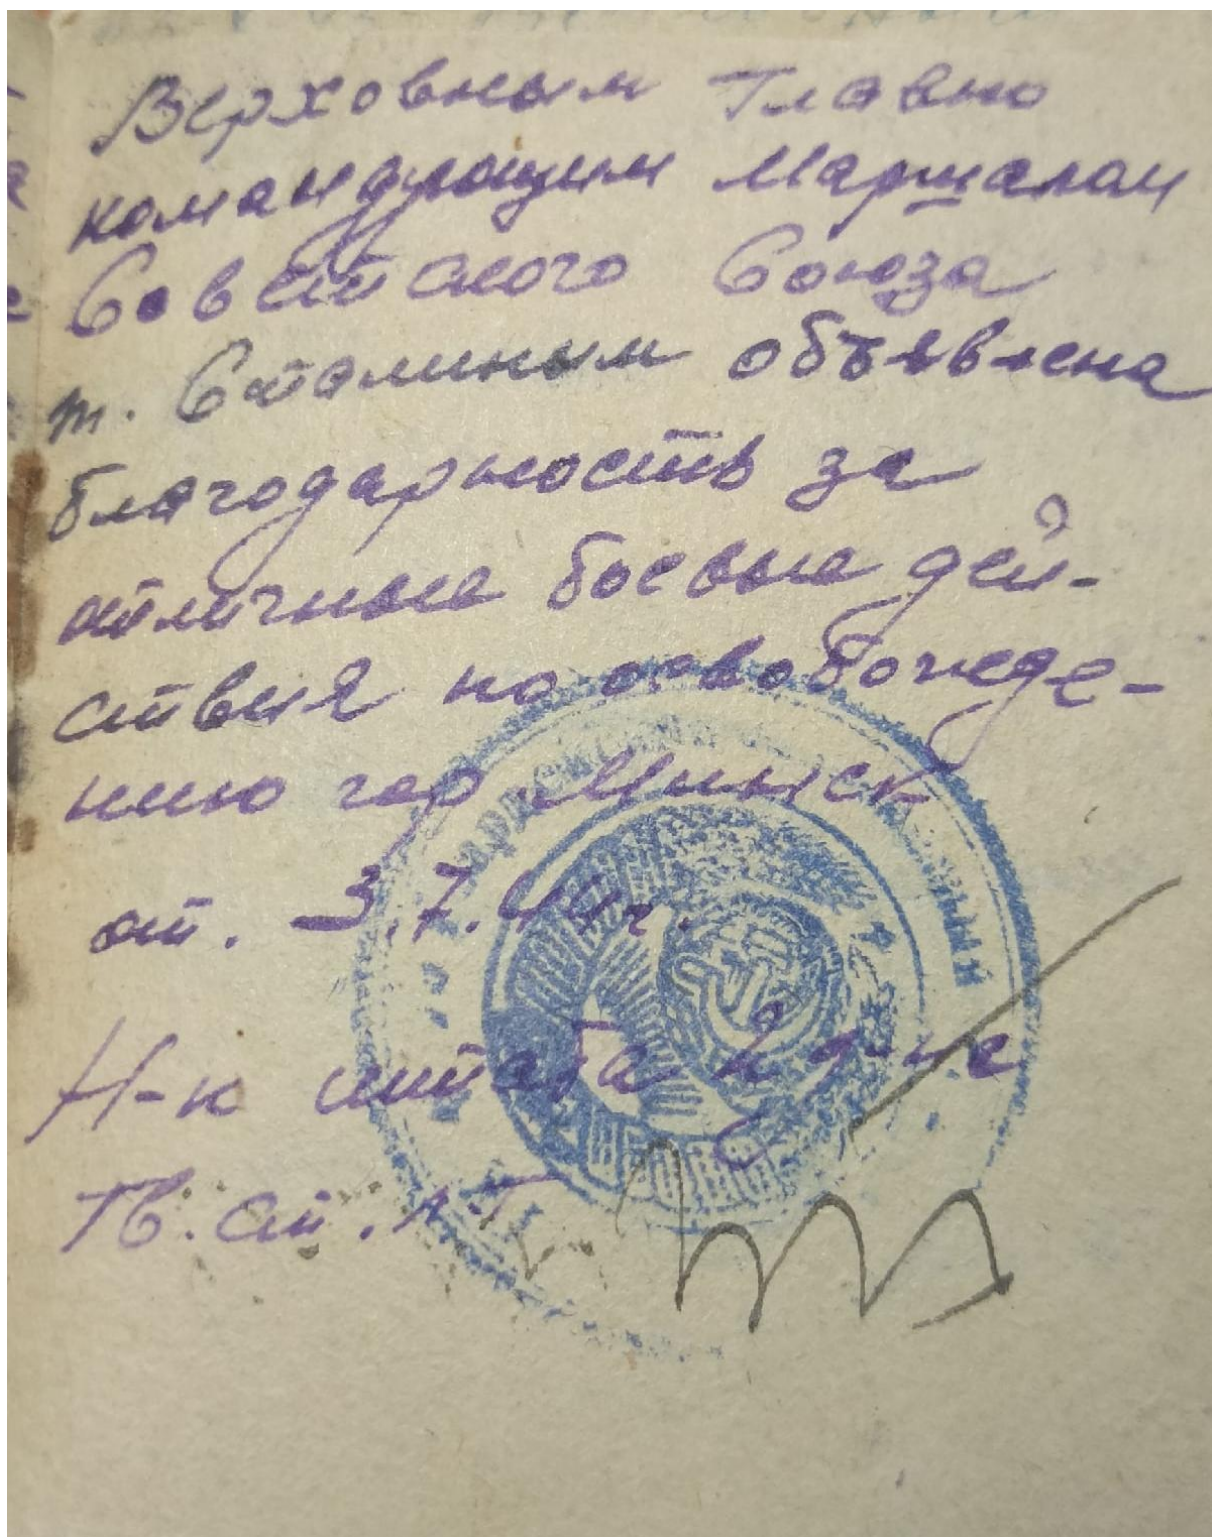 Верховным Главно
командующим Маршалом
Советского Союза
т. Сталиным объявлена
благодарность за
отличные боевые дей-
ствия по освобожде-
нию гор Минск
от. 3.7.44г.
Н-к штаба
Гв. ст. лт